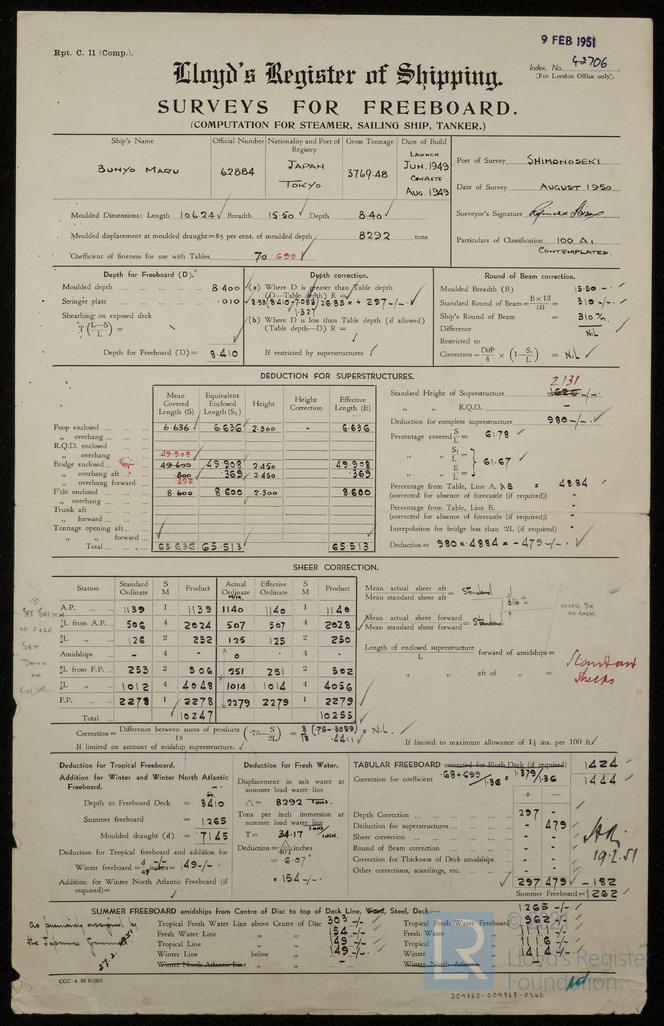 9 FEB 1951
Rpt. C. 11 (Comp.).
Index. No. 42706
(For London Office only).
Lloyd's Register of Shipping.
SURVEYS FOR FREEBOARD.
(COMPUTATION FOR STEAMER, SAILING SHIP, TANKER.)
Ship's Name Official Number Nationality and Port of Registry Gross Tonnage Date of Build
BUNYO MARU 62884 JAPAN TOKYO 3769.48 LAUNCH JUN. 1949 COMPLETE AUG. 1949
Port of Survey SHIMONOSEKI
Date of Survey AUGUST 1950
Surveyor's Signature
Particulars of Classification 100 A1 CONTEMPLATED.
Moulded Dimensions: Length 106.24 Breadth 15.50 Depth 8.40
Moulded displacement at moulded draught=85 per cent. of moulded depth 8292 tons
Coefficient of fineness for use with Tables .70 .699
Depth for Freeboard (D).
Moulded depth 8.400
Stringer plate .010
Sheathing on exposed deck
T(L—S/L) =
Depth for Freeboard (D)= 8.410
Depth correction.
(a) Where D is greater than Table depth
(D—Table depth) R =
= + 297 -/-
(b) Where D is less than Table depth (if allowed)
(Table depth—D) R =
If restricted by superstructures
Round of Beam correction.
Moulded Breadth (B) 15.50
Standard Round of Beam= B×12/50 = 310 -/-
Ship's Round of Beam = 310
Difference NIL
Restricted to
Correction= Diff/4 × (1—S1/L) = NIL
DEDUCTION FOR SUPERSTRUCTURES.
Mean Covered Length (S) Equivalent Enclosed Length (S1) Height Height Correction Effective Length (E)
Poop enclosed 6.636 6.636 2.300 - 6.636
„ overhang
R.Q.D. enclosed
„ overhang 49.908
Bridge enclosed 49.600 49.908 2.450 49.908
„ overhang aft .800 .369 2.450 .369
„ overhang forward .492
F'cle enclosed 8.600 8.600 2.300 8.600
„ overhang
Trunk aft
„ forward
Tonnage opening aft
„ „ forward
Total 65.636 65.513 65.513
Standard Height of Superstructure 2.131
„ „ R.Q.D. -
Deduction for complete superstructure 980 -/-
Percentage covered S/L = 61.78
„ „ S1/L =
„ „ E/L = 61.67
Percentage from Table, Line A. = 48.84
(corrected for absence of forecastle (if required))
Percentage from Table, Line B. -
(corrected for absence of forecastle (if required)) -
Interpolation for bridge less than ·2L (if required) -
Deduction= 980 × .4884 = -479 -/-
SHEER CORRECTION.
Station Standard Ordinate S M Product Actual Ordinate Effective Ordinate S M Product
A.P. 1139 1 1139 1140 1140 1 1140
⅙L from A.P. 506 4 2024 507 507 4 2028
⅓L „ 126 2 252 125 125 2 250
Amidships - 4 - 0 - 4 -
⅓L from F.P. 253 2 506 251 251 2 502
⅙L „ 1012 4 4048 1014 1014 4 4056
F.P. 2278 1 2278 2279 2279 1 2279
Total 10247 10255
Mean actual sheer aft
Mean standard sheer aft = Standard
Mean actual sheer forward
Mean standard sheer forward = Standard
Length of enclosed superstructure forward of amidships=
L
„ „ aft of „ =
Standard Sheers
Correction= Difference between sums of products / 18 (·75— S/2L) = 8/18 (.75-.3089) = NIL.
If limited on account of midship superstructure.
If limited to maximum allowance of 1½ ins. per 100 ft.
Deduction for Tropical Freeboard.
Addition for Winter and Winter North Atlantic Freeboard.
Depth to Freeboard Deck = 8410
Summer freeboard = 1265
Moulded draught (d) = 7145
Deduction for Tropical freeboard and addition for
Winter freeboard= = 149 -/-
Addition for Winter North Atlantic Freeboard (if required)=
Deduction for Fresh Water.
Displacement in salt water at summer load water line
Δ= 8292 TONS.
Tons per inch immersion at summer load water line
T= 34.17 TONS/INCH.
Deduction= Δ/40T inches
= 6.07"
= 154 -/-
TABULAR FREEBOARD corrected for Flush Deck (if required) 1424
Correction for coefficient .68+.699/1.36 = 1.379/1.36 1444
+ —
Depth Correction 297 -
Deduction for superstructures - 479
Sheer correction - -
Round of Beam correction - -
Correction for Thickness of Deck amidships - -
Other corrections, scantlings, etc. - -
297 479 - 182
Summer Freeboard= 1262
19.2.51
SUMMER FREEBOARD amidships from Centre of Disc to top of Deck Line, Wood, Steel, Deck:— 1265 -/-
Tropical Fresh Water Line above Centre of Disc 303 -/-
Fresh Water Line „ „ 154 -/-
Tropical Line „ „ 149 -/-
Winter Line below „ „ 149 -/-
Winter North Atlantic Line „ „
Tropical Fresh Water Freeboard 962
Fresh Water „ 1111
Tropical „ 1116
Winter „ 1414 -/-
Winter North Atlantic „
As previously assigned by the Japanese Government
27.2.1951
CCC-4. 50 KOBE
© 2021
LR
Lloyd's Register
Foundation
009860-009868-0262